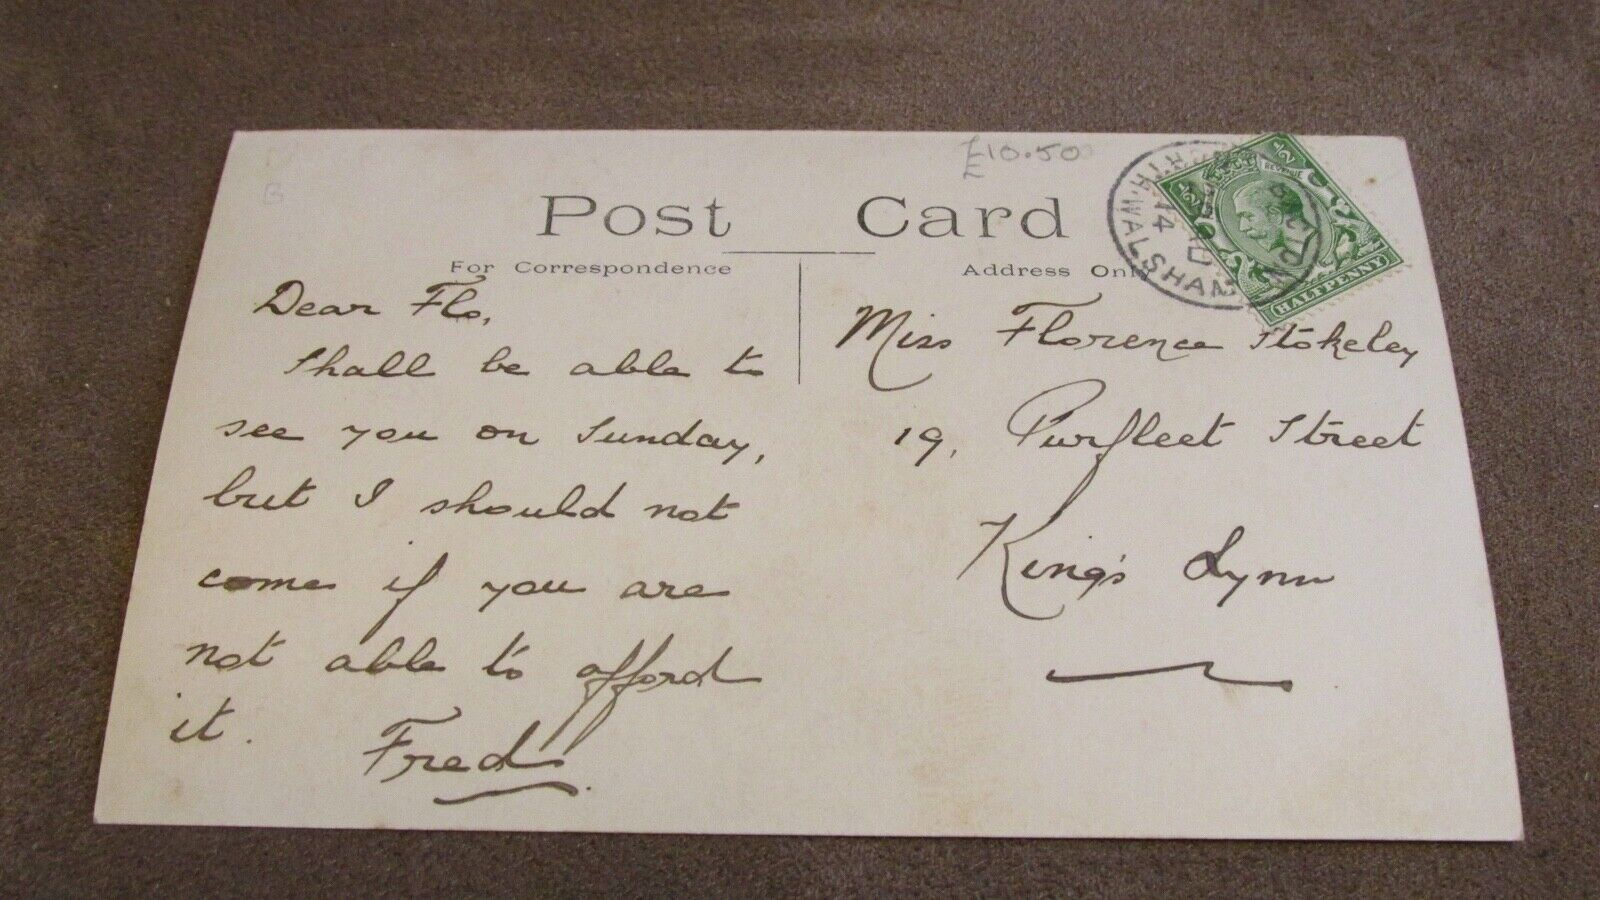 £10.50
Post Card
For Correspondence
Address Only
Dear Flo,
Shall be able to
see you on Sunday,
but I should not
come if you are
not able to afford
it.
Fred
Miss Florence Stokeley
19, Purfleet Street
King's Lynn
WALSHAM
14
½
½
REVENUE
HALFPENNY